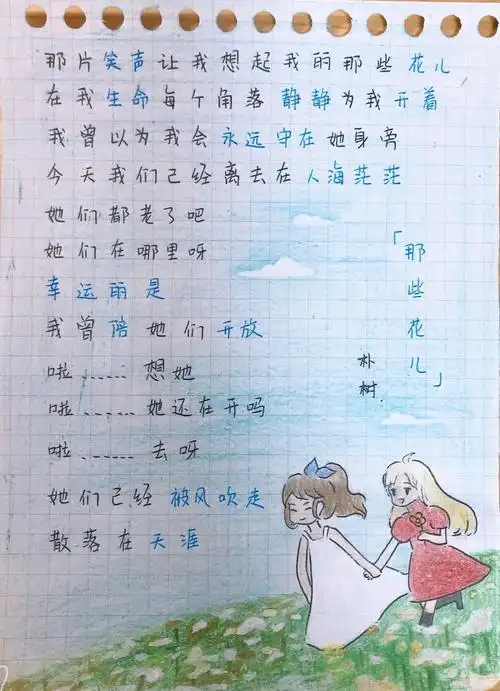 那片笑声让我想起我的那些花儿
在我生命每个角落静静为我开着
我曾以为我会永远守在她身旁
今天我们已经离去在人海茫茫
她们都老了吧
她们在哪里呀
幸运的是
我曾陪她们开放
啦……想她
啦……她还在开吗
啦……去呀
她们已经被风吹走
散落在天涯
「那些花儿」
朴树.